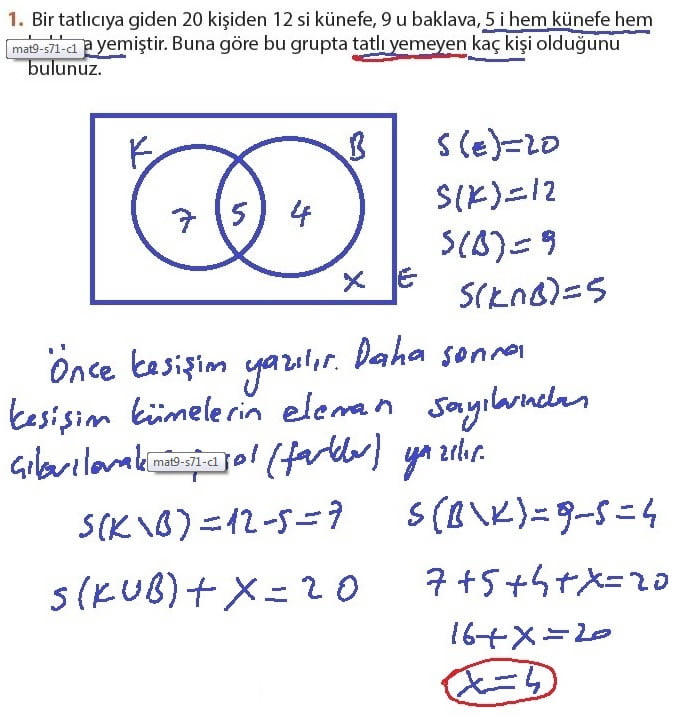 1. Bir tatlıcıya giden 20 kişiden 12 si künefe, 9 u baklava, 5 i hem künefe hem
mat9-s71-c1 a yemiştir. Buna göre bu grupta tatlı yemeyen kaç kişi olduğunu
bulunuz.
K B
7 5 4
X E
S(E)=20
S(K)=12
S(B)=9
S(K∩B)=5
Önce kesişim yazılır. Daha sonra
kesişim kümelerin eleman sayılarından
çıkarılarak mat9-s71-c1 ol (farklar) yazılır.
S(K\B)=12-5=7 S(B\K)=9-5=4
S(KUB)+X=20 7+5+4+X=20
16+X=20
X=4